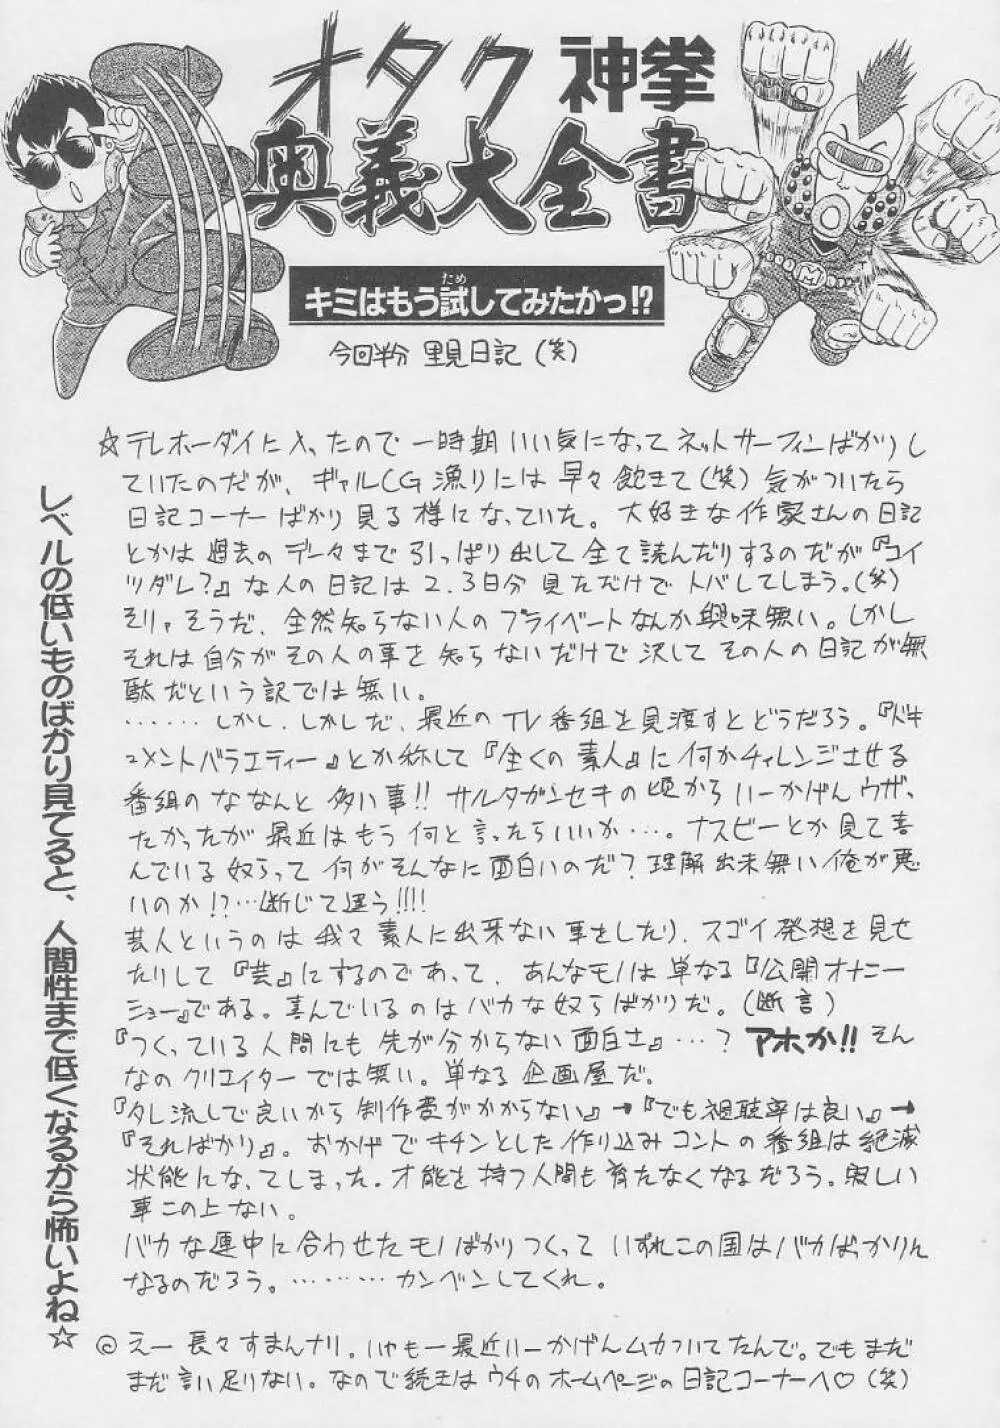 オタク神拳
奥義大全書
キミはもう試してみたかっ!?
ため
今回半分 里見日記(笑)
☆テレホーダイに入ったので一時期いい気になってネットサーフィンばかりし
ていたのだが、ギャルCG漁りには早々飽きて(笑)気がついたら
日記コーナーばかり見る様になっていた。大好きな作家さんの日記
とかは過去のデータまで引っぱり出して全て読んだりするのだが『コイ
ツダレ?』な人の日記は2,3日分見ただけでトバしてしまう。(笑)
そりゃそうだ、全然知らない人のプライベートなんか興味無い。しかし
それは自分がその人の事を知らないだけで決してその人の日記が無
駄だという訳では無い。
……しかし、しかしだ、最近のTV番組を見渡すとどうだろう。『ドキ
ュメントバラエティー』とか称して『全くの素人』に何かチャレンジさせる
番組のななんと多い事!!サルタガンセキの頃からいーかげんウザ
たかったが最近はもう何と言ったらいいか…。ナスビーとか見て喜
んでいる奴らって何がそんなに面白いのだ?理解出来無い俺が悪
いのか!?…断じて違う!!!!
芸人というのは我々素人に出来ない事をしたり、スゴイ発想を見せ
たりして『芸』にするのであって、あんなモノは単なる『公開オナニー
ショー』である。喜んでいるのはバカな奴らばかりだ。(断言)
『つくっている人間にも先が分からない面白さ』…?アホか!!そん
なのクリエイターでは無い。単なる企画屋だ。
『タレ流しで良いから制作費がかからない』→『でも視聴率は良い』→
『そればかり』。おかげでキチンとした作り込みコントの番組は絶滅
状態になってしまった。才能を持つ人間も育たなくなるだろう。寂しい
事この上ない。
バカな連中に合わせたモノばかりつくっていずれこの国はバカばっかりん
なるのだろう。………カンベンしてくれ。
◎えー長々すまんナリ。いやもー最近いーかげんムカついてたんで。でもまだ
まだ言い足りない。なので続きはウチのホームページの日記コーナーへ♡(笑)
レベルの低いものばかり見てると、人間性まで低くなるから怖いよね☆
M